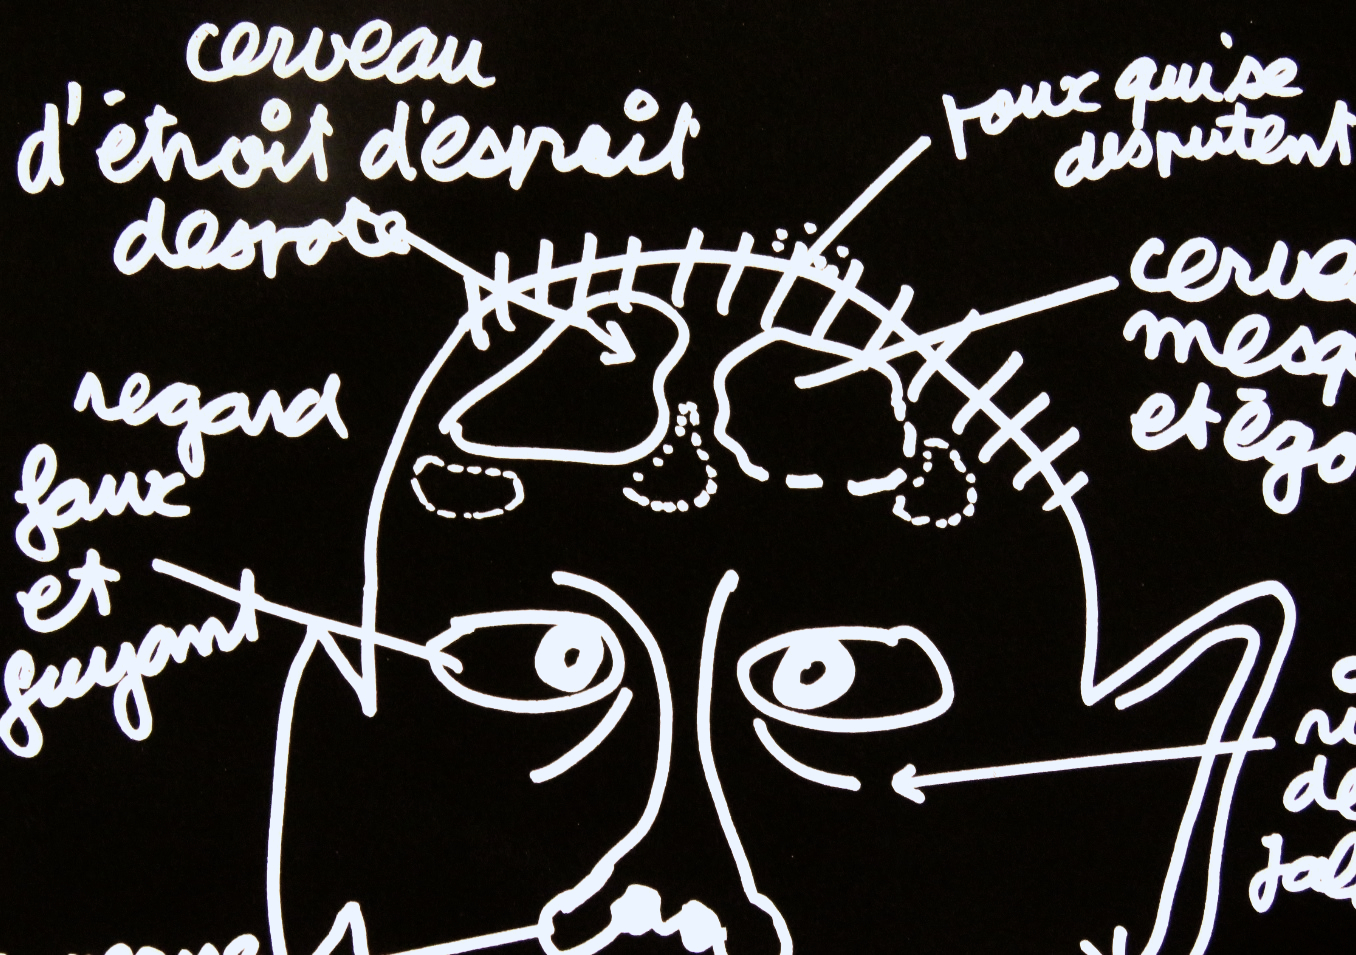 cerveau
d'étroit d'esprit
despote
poux qui se
disputent
cerve
mesq
et égo
regard
faux
et
fuyant
de
jal